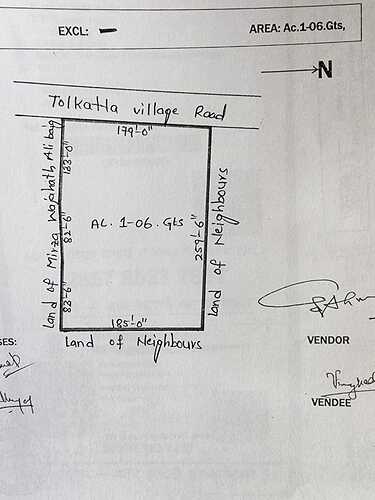 EXCL: —
AREA: Ac.1-06.Gts,
N
Tolkatta village Road
179'-0"
Land of Mirza Wajahath Ali baig
133'-0"
82'-6"
83'-6"
AC. 1-06. Gts
259'-6"
Land of Neighbours
185'-0"
Land of Neighbours
SES:
VENDOR
VENDEE